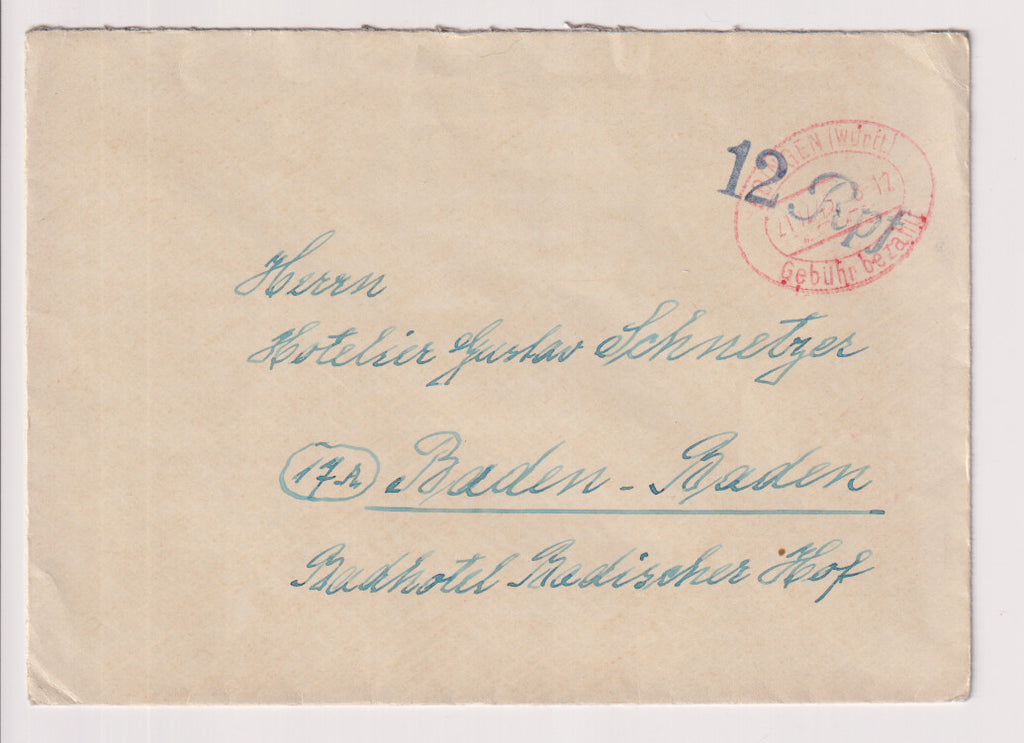 12 Rpf
(Württ)
12
Gebühr bezahlt
Herrn
Hotelier Gustav Schnetzer
17a Baden-Baden
Badhotel Badischer Hof